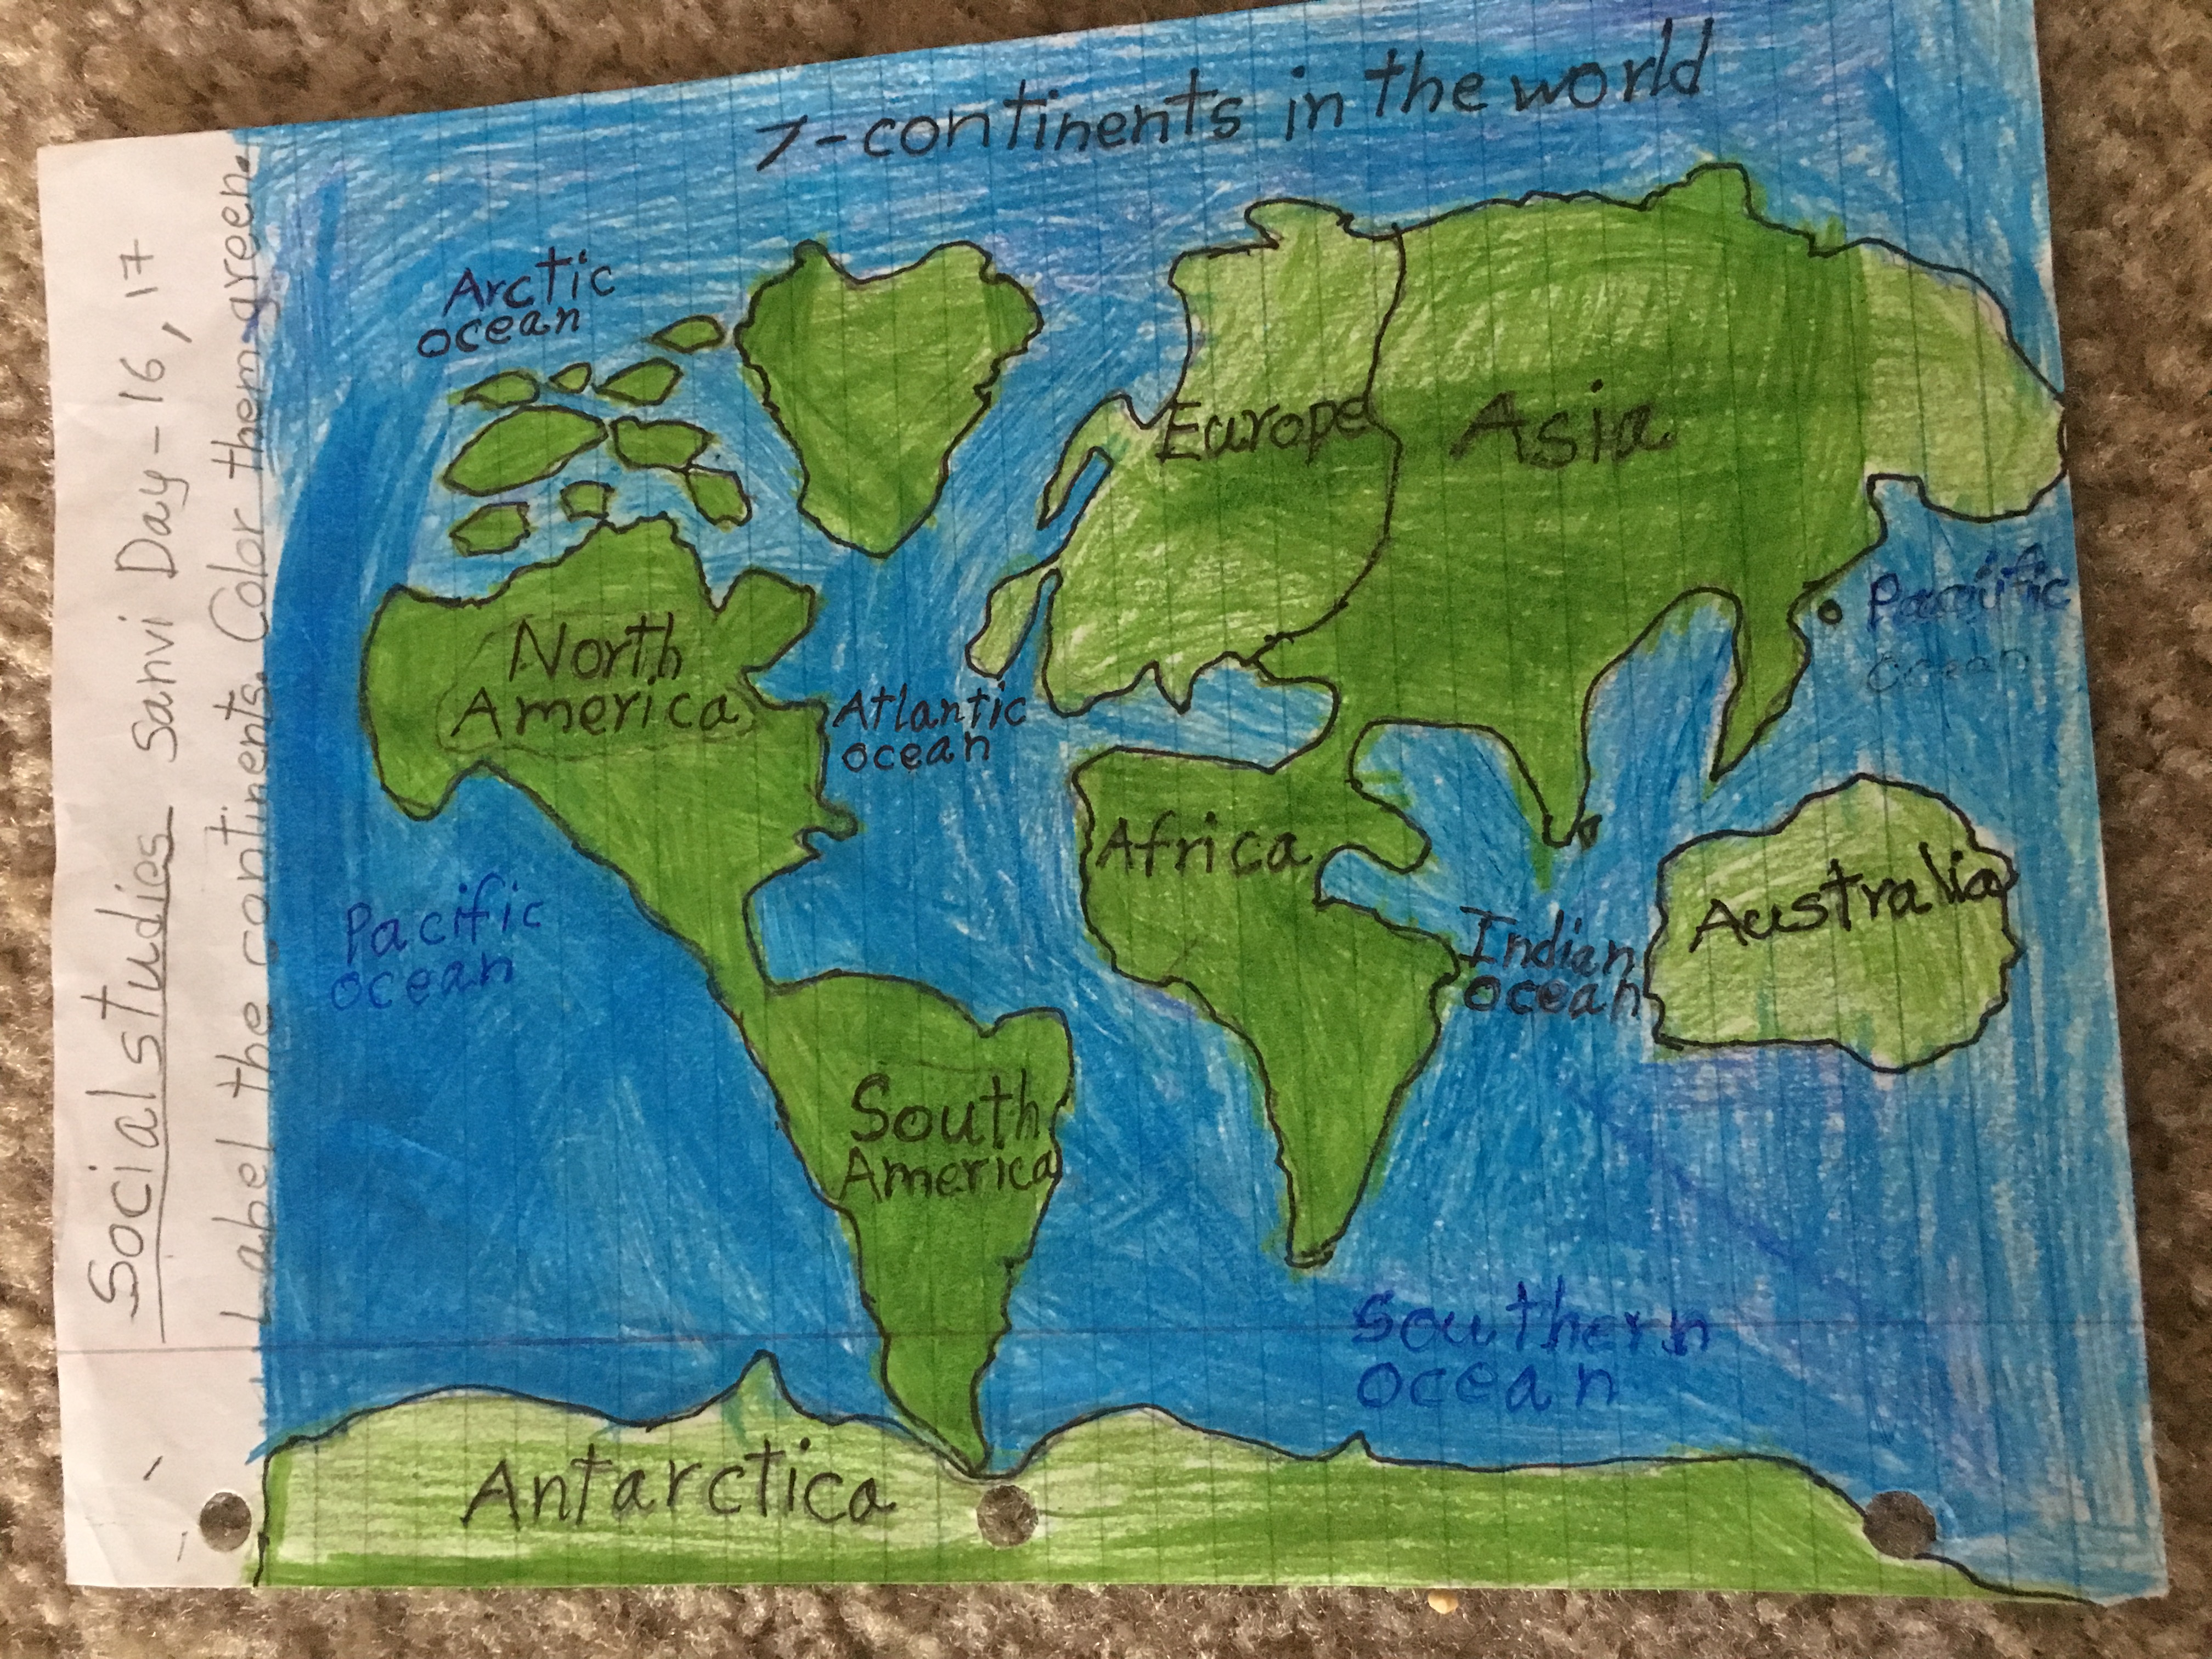 Social studies Sanvi Day-16, 17
Label the continents. Color them green.
7-continents in the world
Arctic
ocean
Europe
Asia
North
America
Atlantic
ocean
Pacific
ocean
Africa
Australia
Pacific
ocean
Indian
ocean
South
America
Southern
ocean
Antarctica